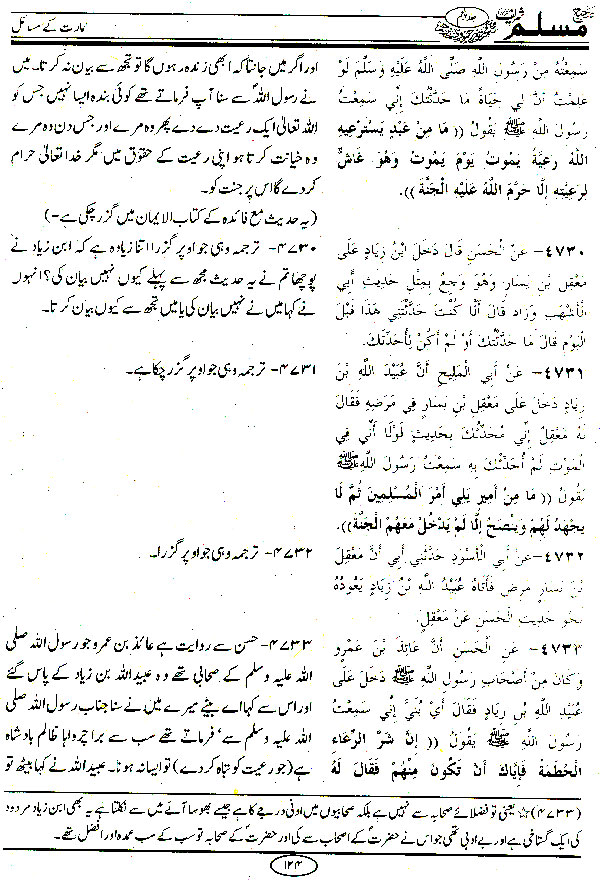 مسلم
امارت کے مسائل
سَمِعْتُهُ مِنْ رَسُولِ اللَّهِ صَلَّى اللَّهُ عَلَيْهِ وَسَلَّمَ لَوْ
عَلِمْتُ أَنَّ لِي حَيَاةً مَا حَدَّثْتُكَ إِنِّي سَمِعْتُ
رَسُولَ اللَّهِ ﷺ يَقُولُ (( مَا مِنْ عَبْدٍ يَسْتَرْعِيهِ
اللَّهُ رَعِيَّةً يَمُوتُ يَوْمَ يَمُوتُ وَهُوَ غَاشٌّ
لِرَعِيَّتِهِ إِلَّا حَرَّمَ اللَّهُ عَلَيْهِ الْجَنَّةَ )).
٤٧٣٠- عَنْ الْحَسَنِ قَالَ دَخَلَ ابْنُ زِيَادٍ عَلَى
مَعْقِلِ بْنِ يَسَارٍ وَهُوَ وَجِعٌ بِمِثْلِ حَدِيثِ أَبِي
الْأَشْهَبِ وَزَادَ قَالَ أَلَّا كُنْتَ حَدَّثْتَنِي هَذَا قَبْلَ
الْيَوْمِ قَالَ مَا حَدَّثْتُكَ أَوْ لَمْ أَكُنْ لِأُحَدِّثَكَ.
٤٧٣١- عَنْ أَبِي الْمَلِيحِ أَنَّ عُبَيْدَ اللَّهِ بْنَ
زِيَادٍ دَخَلَ عَلَى مَعْقِلِ بْنِ يَسَارٍ فِي مَرَضِهِ فَقَالَ
لَهُ مَعْقِلٌ إِنِّي مُحَدِّثُكَ بِحَدِيثٍ لَوْلَا أَنِّي فِي
الْمَوْتِ لَمْ أُحَدِّثْكَ بِهِ سَمِعْتُ رَسُولَ اللَّهِ ﷺ
يَقُولُ (( مَا مِنْ أَمِيرٍ يَلِي أَمْرَ الْمُسْلِمِينَ ثُمَّ لَا
يَجْهَدُ لَهُمْ وَيَنْصَحُ إِلَّا لَمْ يَدْخُلْ مَعَهُمْ الْجَنَّةَ)).
٤٧٣٢- عَنْ أَبِي الْأَسْوَدِ حَدَّثَنِي أَبِي أَنَّ مَعْقِلَ
بْنَ يَسَارٍ مَرِضَ فَأَتَاهُ عُبَيْدُ اللَّهِ بْنُ زِيَادٍ يَعُودُهُ
نَحْوَ حَدِيثِ الْحَسَنِ عَنْ مَعْقِلٍ.
٤٧٣٣- عَنْ الْحَسَنِ أَنَّ عَائِذَ بْنَ عَمْرٍو
وَكَانَ مِنْ أَصْحَابِ رَسُولِ اللَّهِ ﷺ دَخَلَ عَلَى
عُبَيْدِ اللَّهِ بْنِ زِيَادٍ فَقَالَ أَيْ بُنَيَّ إِنِّي سَمِعْتُ
رَسُولَ اللَّهِ ﷺ يَقُولُ (( إِنَّ شَرَّ الرِّعَاءِ
الْحُطَمَةُ فَإِيَّاكَ أَنْ تَكُونَ مِنْهُمْ فَقَالَ لَهُ
اور اگر میں جانتا کہ ابھی زندہ رہوں گا تو تجھ سے بیان نہ کرتا۔ میں
نے رسول اللہ سے سنا آپ فرماتے تھے کوئی بندہ ایسا نہیں جس کو
اللہ تعالیٰ ایک رعیت دے دے پھر وہ مرے اور جس دن وہ مرے
وہ خیانت کرتا ہو اپنی رعیت کے حقوق میں مگر خدا تعالیٰ حرام
کر دے گا اس پر جنت کو۔
(یہ حدیث مع فائدہ کے کتاب الایمان میں گزر چکی ہے-)
٤٧٣٠- ترجمہ وہی جو اوپر گزرا اتنا زیادہ ہے کہ ابن زیاد نے
پوچھا تم نے یہ حدیث مجھ سے پہلے کیوں نہیں بیان کی؟ انہوں
نے کہا میں نے نہیں بیان کی یا میں تجھ سے کیوں بیان کرتا۔
٤٧٣١- ترجمہ وہی جو اوپر گزر چکا ہے۔
٤٧٣٢- ترجمہ وہی جو اوپر گزرا۔
٤٧٣٣- حسن سے روایت ہے عائذ بن عمرو جو رسول اللہ صلی
اللہ علیہ وسلم کے صحابی تھے وہ عبیداللہ بن زیاد کے پاس گئے
اور اس سے کہا اے بیٹے میرے میں نے سنا جناب رسول اللہ صلی
اللہ علیہ وسلم سے' فرماتے تھے سب سے برا چرواہا ظالم بادشاہ
ہے (جو رعیت کو تباہ کردے) تو ایسا نہ ہونا۔ عبیداللہ نے کہا بیٹھ تو
(٤٧٣٣) ☆ یعنی تو فضلائے صحابہ سے نہیں ہے بلکہ صحابیوں میں ادنیٰ درجے کا ہے جیسے بھوسا آٹے میں سے نکلتا ہے یہ بھی ابن زیاد مردود
کی ایک گستاخی ہے اور بے ادبی تھی جو اس نے حضرت کے اصحاب سے کی اور حضرت کے صحابہ تو سب کے سب عمدہ اور افضل تھے۔
١٢٤